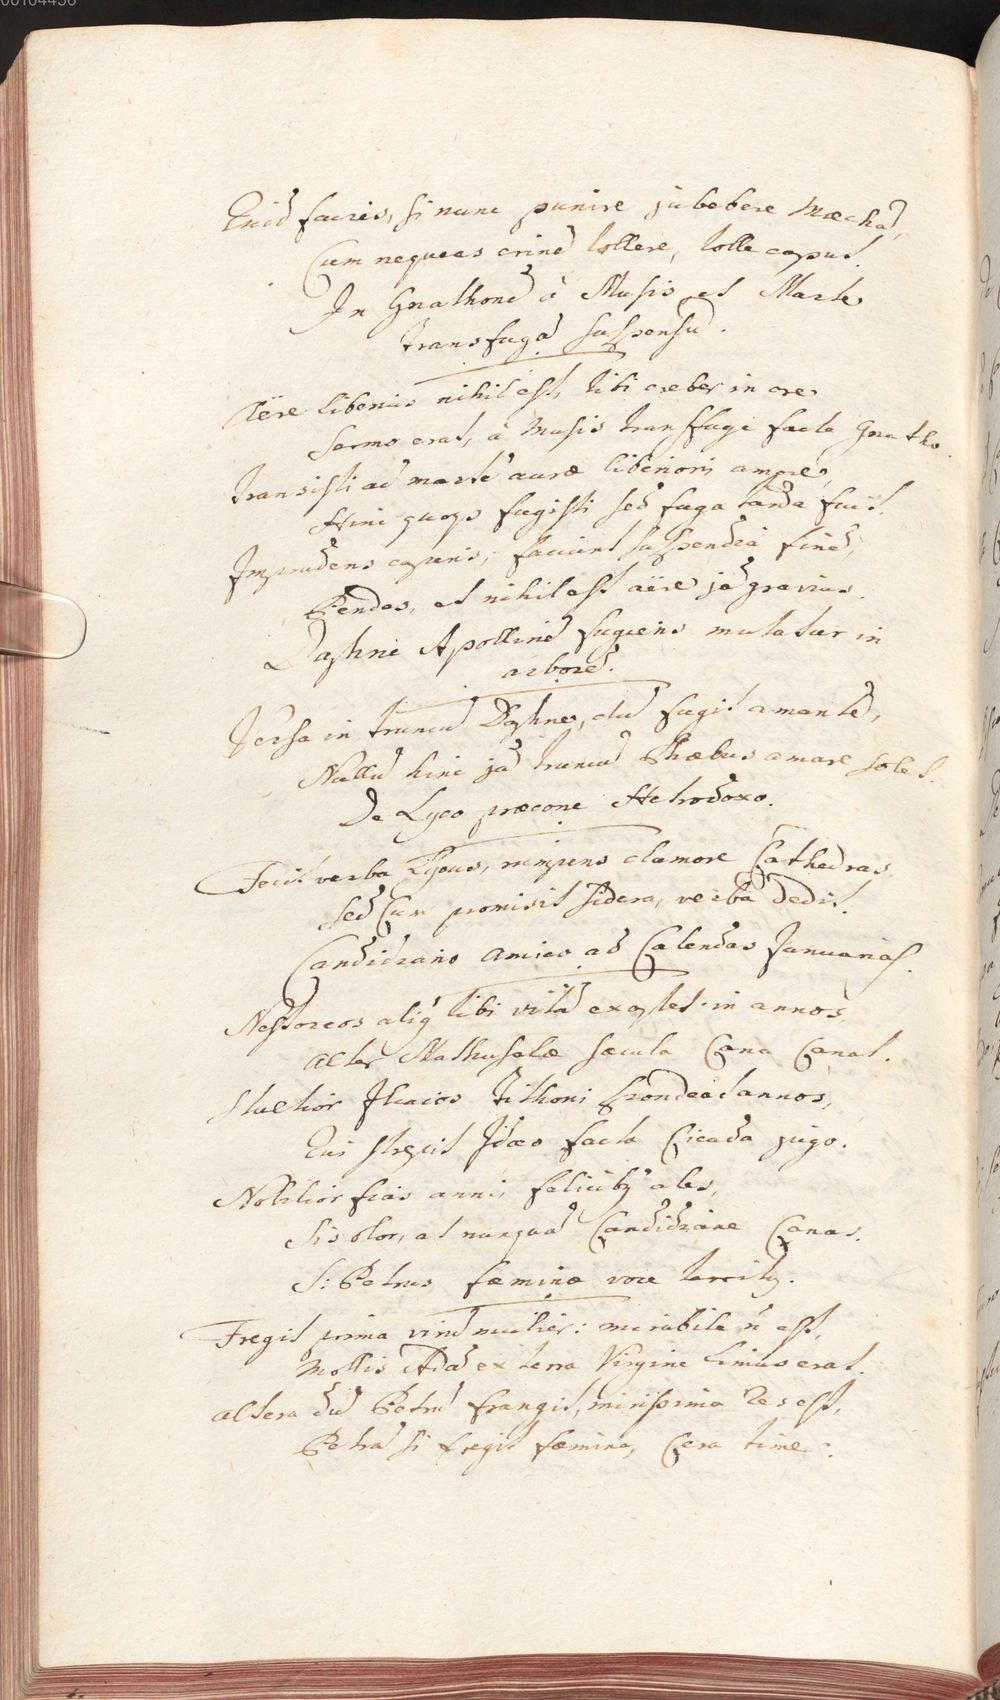 00104456
Quid facies, si nunc punire jubebere Mœchā,
Cum nequeas crinē tollere, tolle caput.
In Gnathonē à Musis et Marte
transfugā suspensū.
Aëre liberius nihil est, tibi creber in ore
Sermo erat, à Musis transfuga facte Gnatho.
Transisti ad martē auræ liberioris amore,
Hinc quoq; fugisti sed fuga tarda fuit.
Imprudens caperis, faciunt suspendia finē,
Pendes, et nihil est aëre jā gravius.
Daphne Apollinē fugiens mutatur in
arborē.
Versa in truncū Daphne, dū fugit amantē,
Nullū hinc jā truncū Phœbus amare solet.
De Lyco præcone Hetrodoxo.
Fecit verba Lycus, rumpens clamore Cathedras,
sed Cum promisit sidera, verba dedit.
Candidiano amico ad Calendas Januarias.
Nestoreos aliq' tibi vitā exoptet in annos,
alter Mathusalæ sæcula Cana Canat.
Stultior Iliacos Tithoni spondeat annos,
Qui strepit Idæo facta Cicada jugo.
Nobilior fias annis felicibq ales,
Sis olor, at nunquā Candidiane Canas.
S: Petrus fæminæ voce territq.
Fregit prima virū mulier: mirabile ñ est,
Mollis Adā ex terra Virgine limus erat.
altera dū Petrū frangit, mirissima res est,
Petrā si fregit fæmina, Cera time.